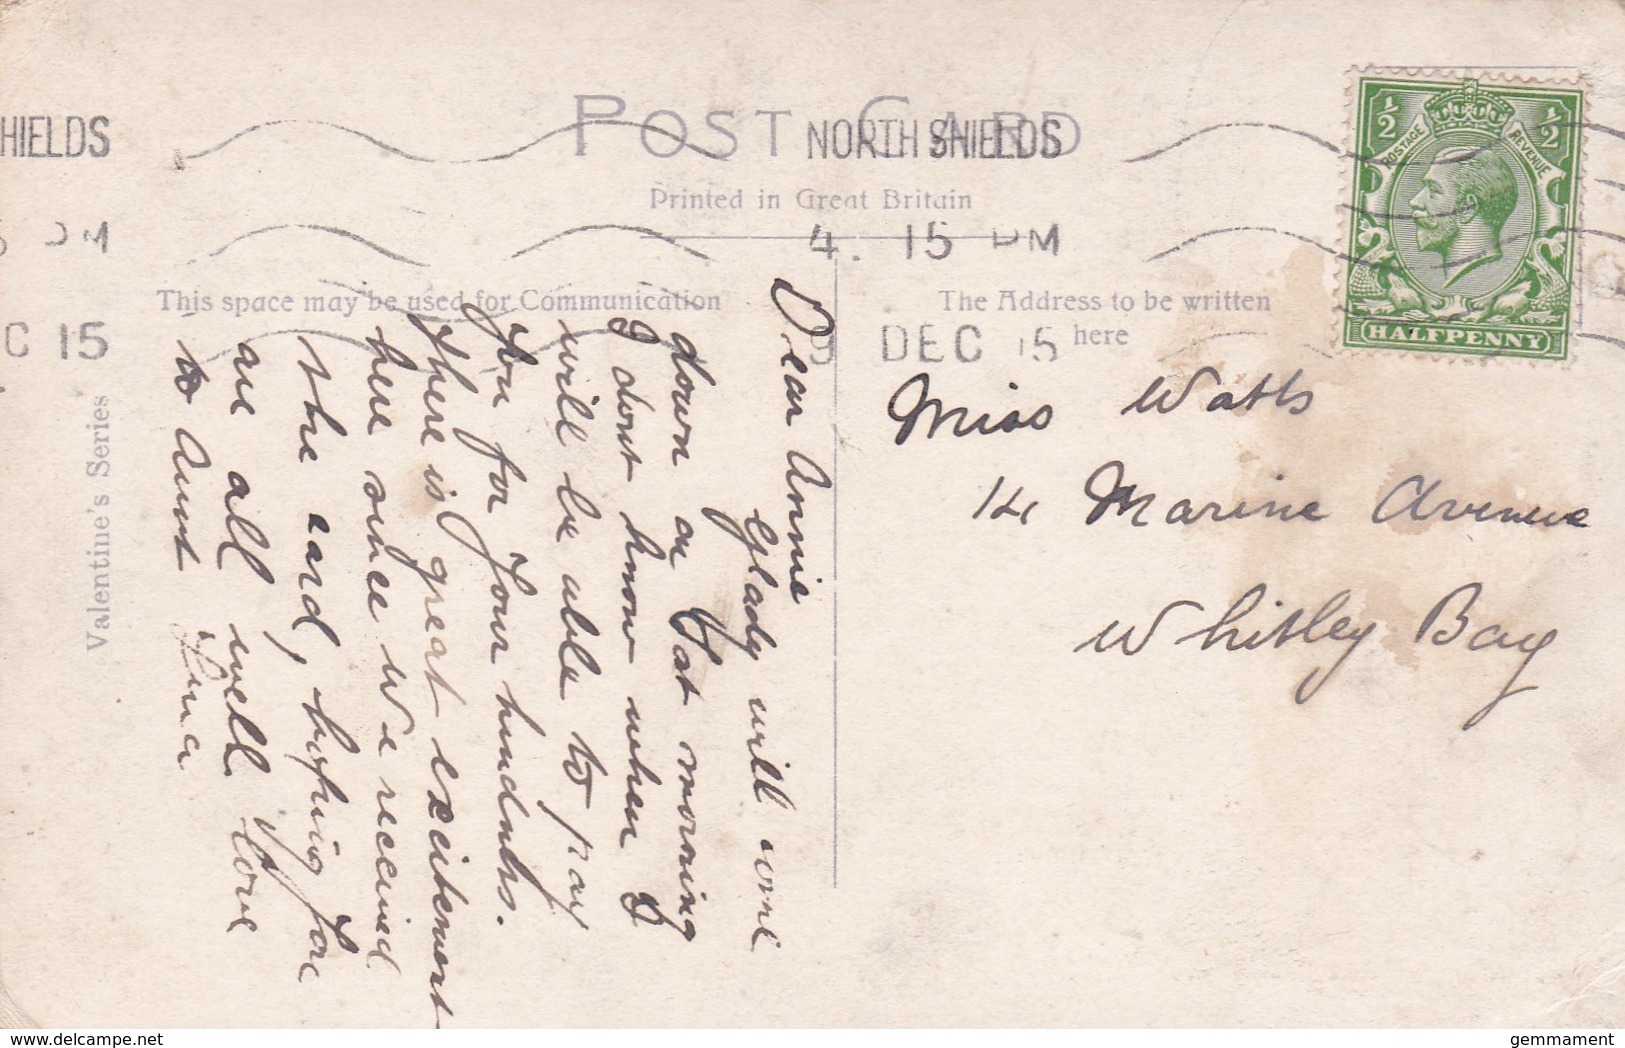 POST CARD
Printed in Great Britain
This space may be used for Communication
The Address to be written
here
Valentine's Series
NORTH SHIELDS
4. 15 PM
DEC 15
HIELDS
PM
C 15
POSTAGE
REVENUE
½
½
HALFPENNY
Miss Watts
14 Marine Avenue
Whitley Bay
Dear Annie
Glady will come
down on Sat morning
I dont know when I
will be able to pay
You for Your kindness.
There is great excitement
here since We received
the card, hoping You
are all well love
to Aunt
delcampe.net
gemmament